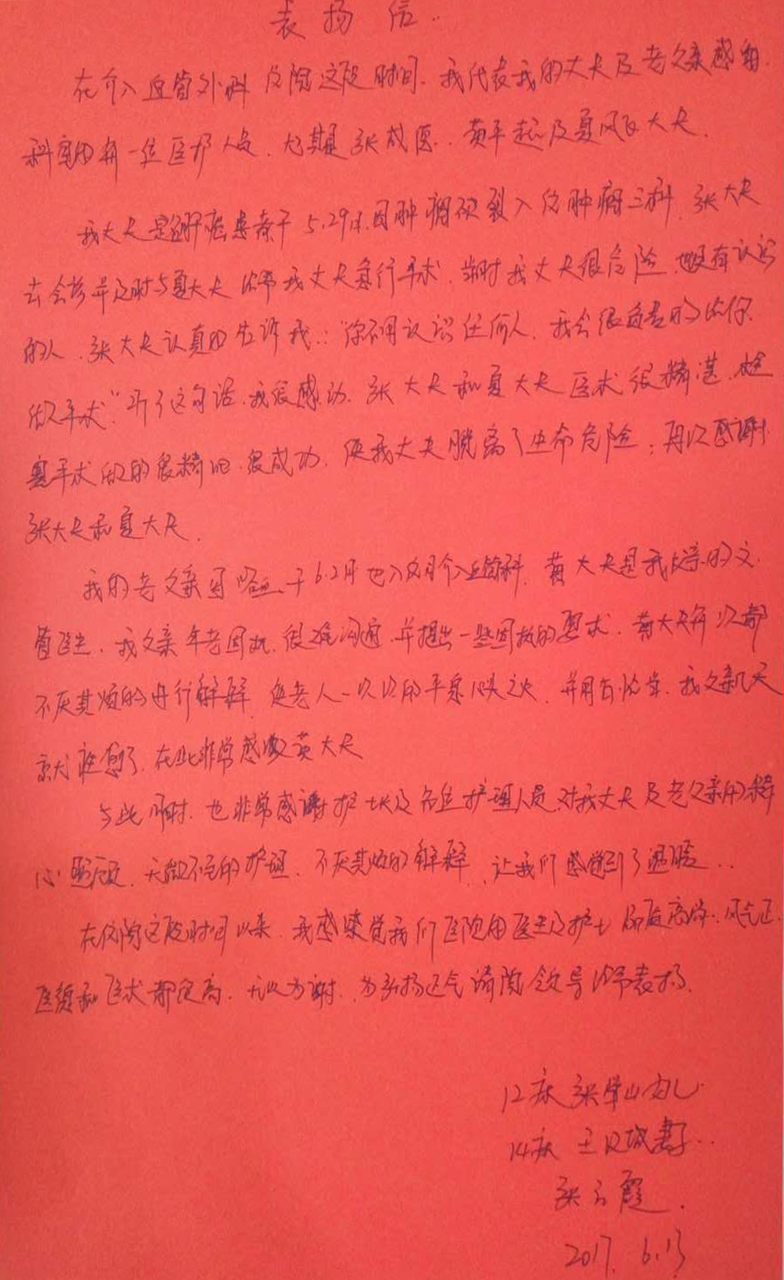 表扬信.
在介入血管外科住院这段时间.我代表我的丈夫及老父亲感谢
科室的每一位医护人员.尤其是张成医.黄平起及夏风飞大夫.
我丈夫是肝癌患者于5.29日.因肿瘤破裂入住肿瘤三科.张大夫
去会诊并及时与夏大夫给予我丈夫急行手术.当时我丈夫很危险.也没有认识
的人.张大夫认真的告诉我:"你不用认识任何人.我会很负责的给你
做手术."听了这句话.我很感动.张大夫和夏大夫医术很精湛.栓
塞手术做的很精细.很成功.使我丈夫脱离了生命危险;再次感谢
张大夫和夏大夫.
我的老父亲因 于6.2日也入住介入血管科.黄大夫是我父亲的主
管医生.我父亲年老 很难沟通.并提出一些固执的要求.黄大夫每次都
不厌其烦的进行解释 使老人一次次的平息心头之火.并用 我父亲几天
就痊愈了.在此非常感谢黄大夫
与此同时.也非常感谢护士长及各位护理人员.对我丈夫及老父亲的精
心照顾.无微不至的护理.不厌其烦的解释.让我们感觉到了温暖..
在住院这段时间以来.我感觉我们医院的医生及护士品质高尚.风气正.
医德和医术都很高.无以为谢.为弘扬正气请院领导给予表扬.
12床 张 山 女儿
14床 王 城妻子..
张云霞.
2017. 6.13